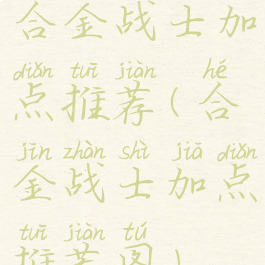 合金战士加
diǎn tuī jiàn hé
点推荐(合
jīn zhàn shì jiā diǎn
金战士加点
tuī jiàn tú
推荐图)